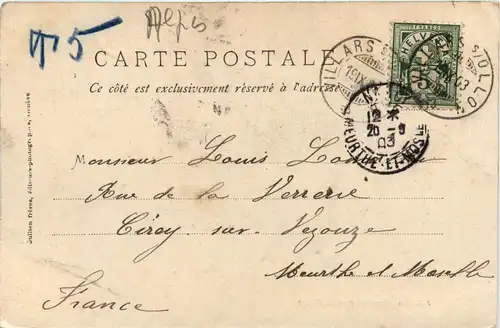 Alpes
T5
CARTE POSTALE
Ce côté est exclusivement réservé à l'adresse
HELVETIA
5
VILLARS S OLLON
19 IX 03
12
20 -9
03
MEURTHE-ET-MOSELLE
Monsieur Louis
Rue de la Verrerie
Cirey sur Vezouze
Meurthe et Moselle
France
Jullien frères, édit.
Genève